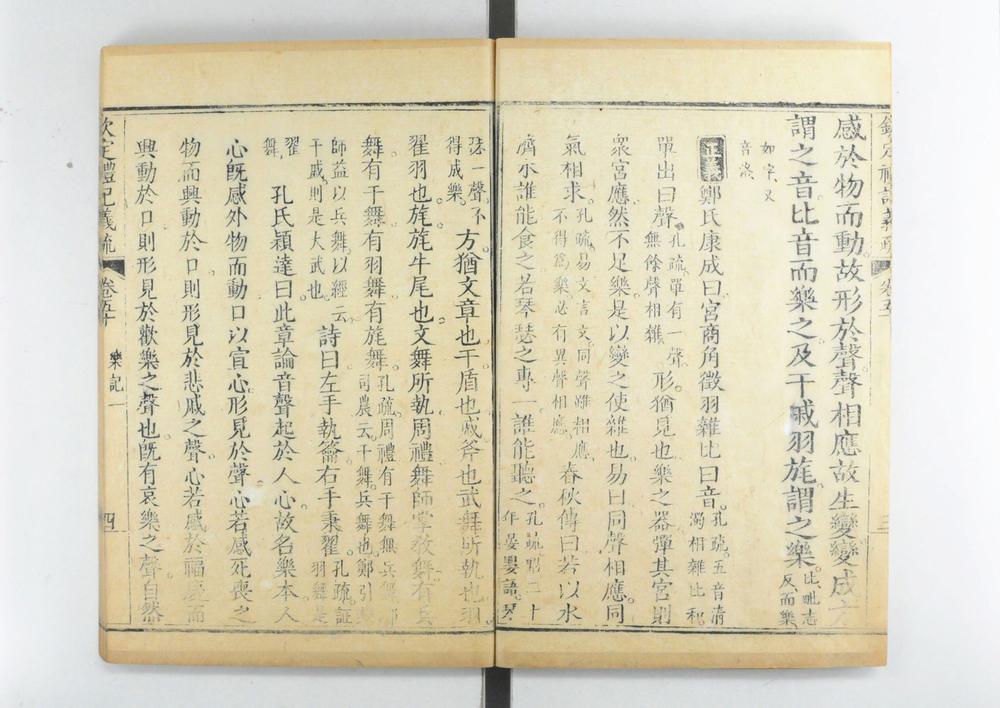 感於物而動故形於聲聲相應故生變變成方
謂之音比音而樂之及干戚羽旄謂之樂比毗志反而樂
如字又音洛
正義鄭氏康成曰宮商角徵羽雜比曰音孔疏五音清濁相雜比和
單出曰聲孔疏單有一聲無餘聲相雜形猶見也樂之器彈其宮則
眾宮應然不足樂是以變之使雜也易曰同聲相應同
氣相求孔疏易文言文同聲雖相應不得為樂必有異聲相應春秋傳曰若以水
濟水誰能食之若琴瑟之專一誰能聽之孔疏昭二十年晏嬰語琴
瑟一聲不得成樂方猶文章也干盾也戚斧也武舞所執也羽
翟羽也旄旄牛尾也文舞所執周禮舞師掌教舞有兵
舞有干舞有羽舞有旄舞孔疏周禮有干舞無兵舞鄭司農云干舞兵舞也鄭引樂
師益以兵舞以經云干戚則是大武也詩曰左手執籥右手秉翟孔疏証羽舞是
翟舞孔氏穎達曰此章論音聲起於人心故名樂本人
心既感外物而動口以宣心形見於聲心若感死喪之
物而興動於口則形見於悲戚之聲心若感於福慶而
興動於口則形見於歡樂之聲也既有哀樂之聲自然
欽定禮記義疏 卷五十 樂記一 四